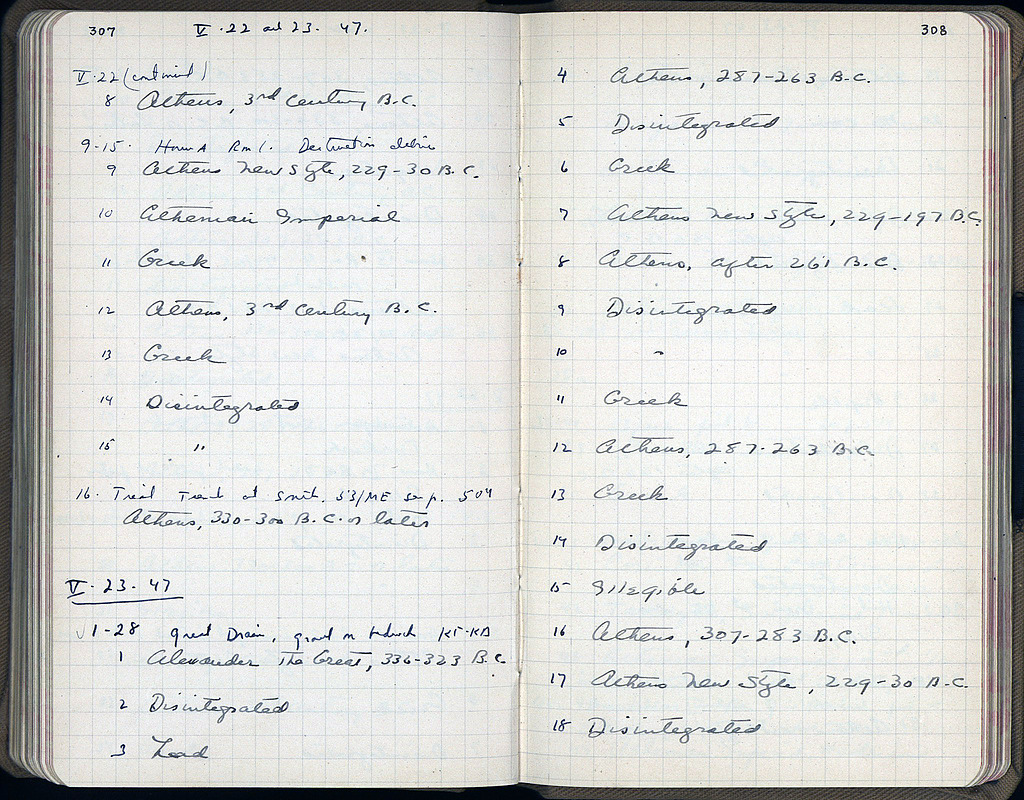 307 V·22 and 23. 47.
V·22 (continued)
8 Athens, 3rd Century B.C.
9-15. House A Rm 1. Destruction debris
9 Athens New Style, 229-30 B.C.
10 Athenian Imperial
11 Greek
12 Athens, 3rd Century B.C.
13 Greek
14 Disintegrated
15 "
16. Trial Trench at South. 53/ME
Athens, 330-300 B.C. or later
V·23·47
1-28 Great Drain, gravel
1 Alexander The Great, 336-323 B.C.
2 Disintegrated
3 Lead
308
4 Athens, 287-263 B.C.
5 Disintegrated
6 Greek
7 Athens New Style, 229-197 B.C.
8 Athens, after 261 B.C.
9 Disintegrated
10 "
11 Greek
12 Athens, 287-263 B.C.
13 Greek
14 Disintegrated
15 Illegible
16 Athens, 307-283 B.C.
17 Athens New Style, 229-30 B.C.
18 Disintegrated